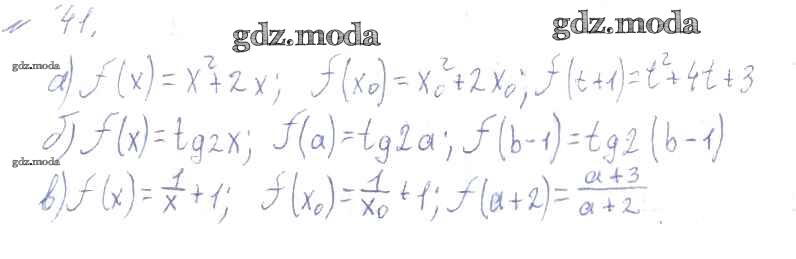 N 41.
gdz.moda
gdz.moda
gdz.moda
а) f(x) = x² + 2x; f(x₀) = x₀² + 2x₀; f(t+1) = t² + 4t + 3
б) f(x) = tg2x; f(a) = tg2a; f(b-1) = tg2(b-1)
gdz.moda
в) f(x) = 1/x + 1; f(x₀) = 1/x₀ + 1; f(a+2) = a+3/a+2